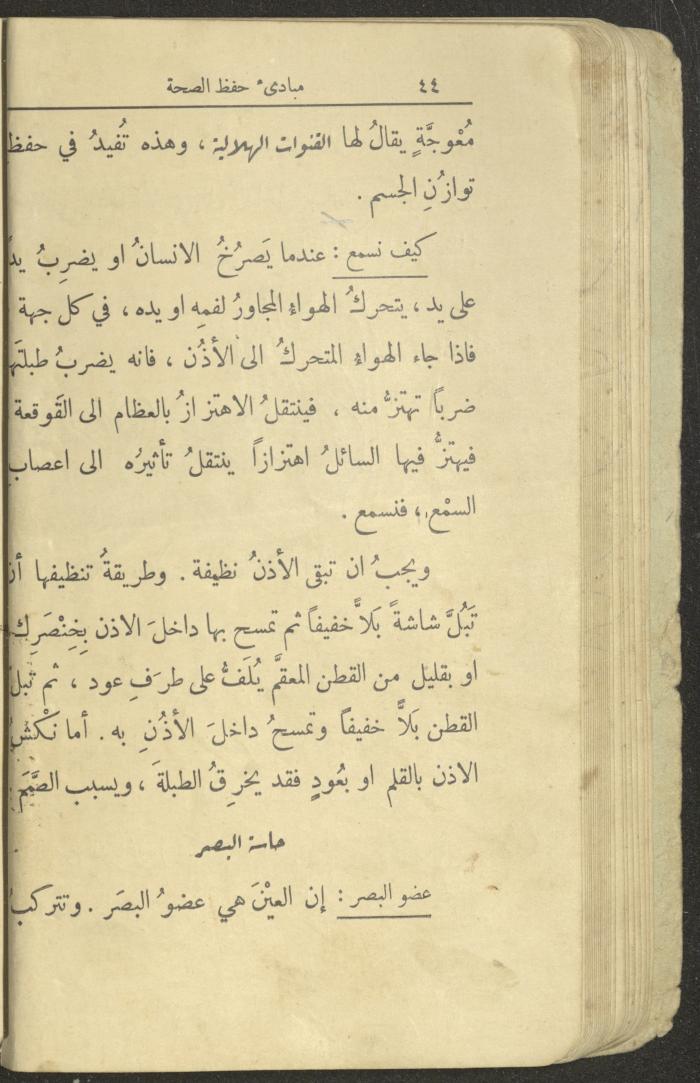 ٤٤ مبادىء حفظ الصحة
مُعْوجَّةٍ يقالُ لها القنوات الهلالية ، وهذه تُفيدُ في حفظ
توازُنِ الجسم .
كيف نسمع : عندما يَصرُخُ الانسانُ او يضرِبُ يداً
على يد ، يتحركُ الهواءُ المجاورُ لفمِه او يده ، في كل جهة
فاذا جاء الهواءُ المتحركُ الى الأذُن ، فانه يضربُ طبلتَها
ضرباً تهتزُّ منه ، فينتقلُ الاهتزازُ بالعظام الى القَوقعة
فيهتزُّ فيها السائلُ اهتزازاً ينتقلُ تأثيرُه الى اعصاب
السمْع ، فنسمع .
ويجبُ ان تبقى الأذنُ نظيفة . وطريقةُ تنظيفها أن
تَبُلَّ شاشةً بَلاًّ خفيفاً ثم تمسح بها داخلَ الاذن بِخِنْصَرِك
او بقليل من القطن المعقَّم يُلَفُّ على طرَفِ عود ، ثم تبل
القطن بَلاًّ خفيفاً وتمسحُ داخلَ الأذُنِ به . أما نَكْشُ
الاذن بالقلم او بعُودٍ فقد يخرِقُ الطبلةَ ، ويسبب الصَّمَمَ .
حاسة البصر
عضو البصر : إن العيْنَ هي عضوُ البصَر . وتتركبُ